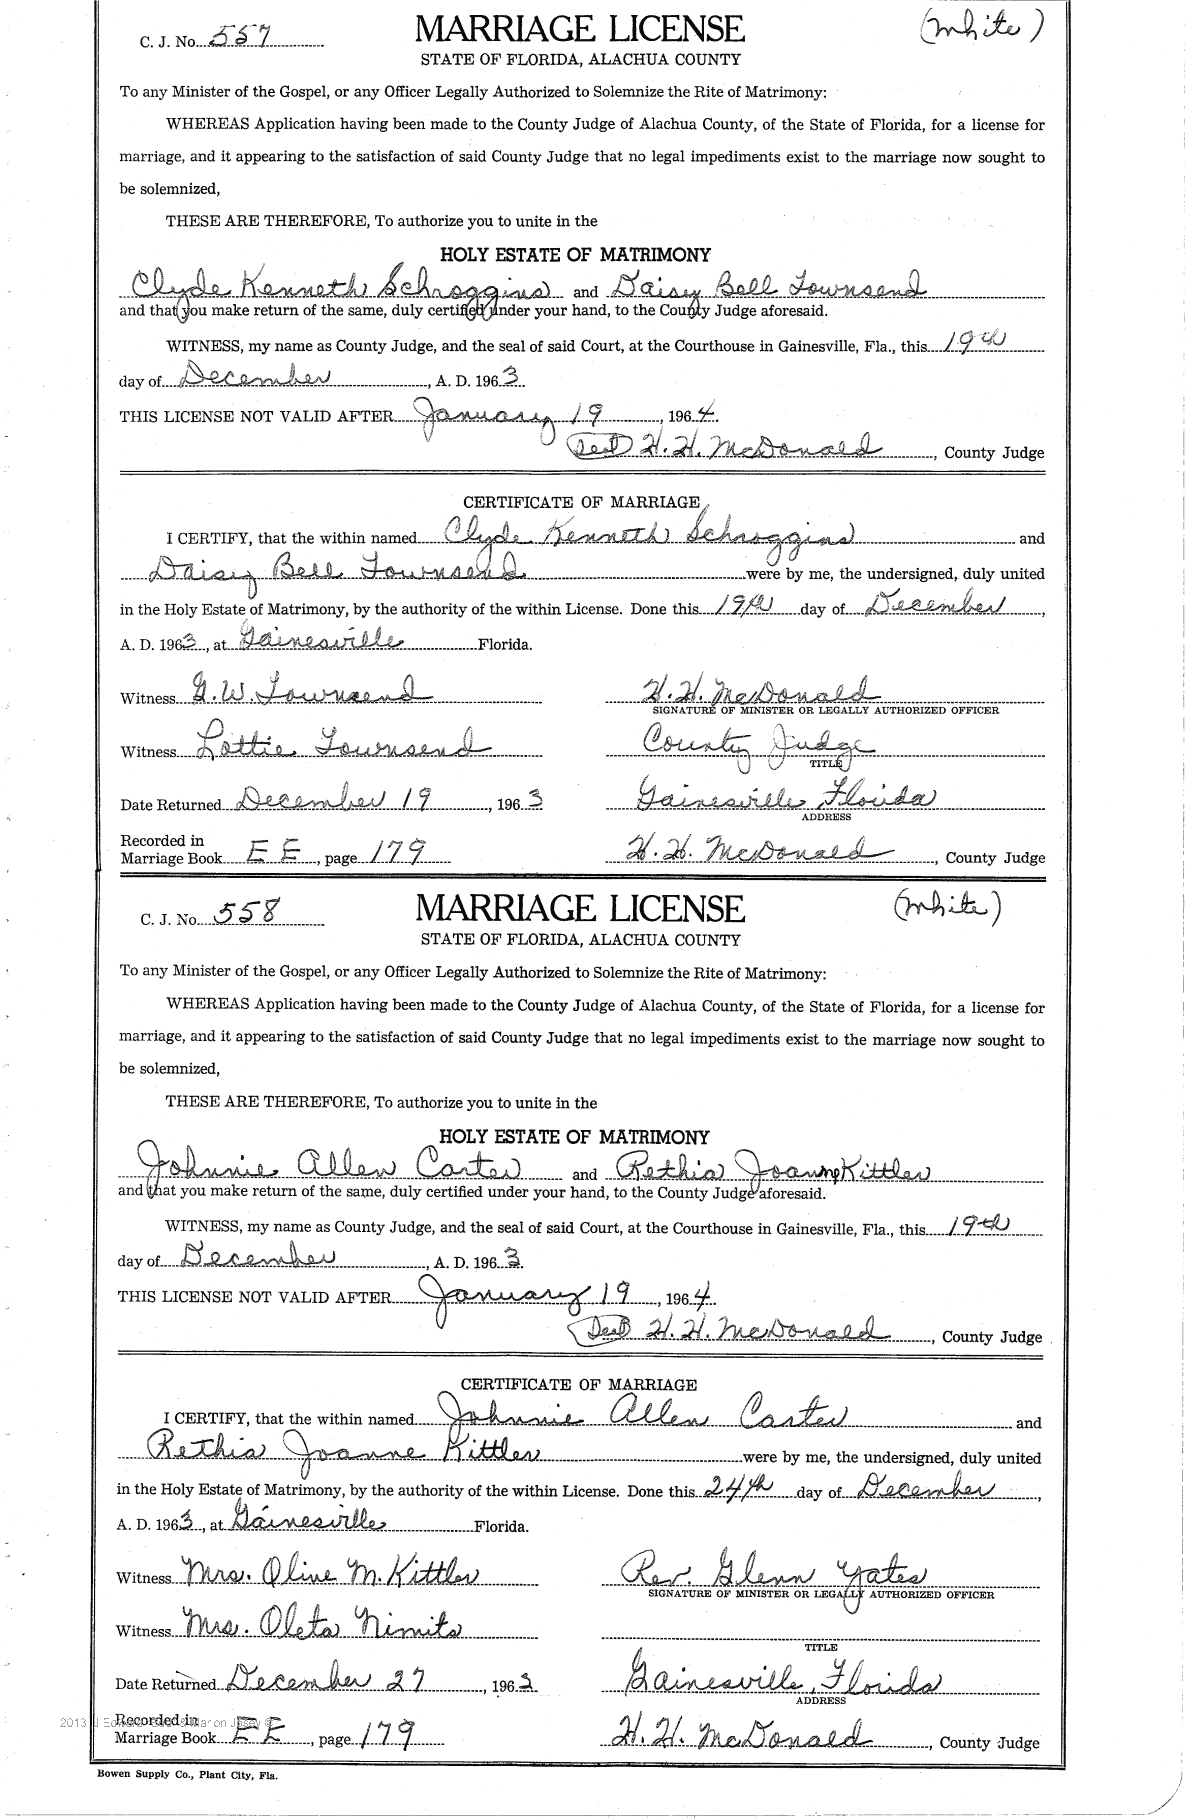 C. J. No. 557 MARRIAGE LICENSE (White)
STATE OF FLORIDA, ALACHUA COUNTY
To any Minister of the Gospel, or any Officer Legally Authorized to Solemnize the Rite of Matrimony:
WHEREAS Application having been made to the County Judge of Alachua County, of the State of Florida, for a license for
marriage, and it appearing to the satisfaction of said County Judge that no legal impediments exist to the marriage now sought to
be solemnized,
THESE ARE THEREFORE, To authorize you to unite in the
HOLY ESTATE OF MATRIMONY
Clyde Kenneth Schroggins and Daisy Bell Townsend
and that you make return of the same, duly certified under your hand, to the County Judge aforesaid.
WITNESS, my name as County Judge, and the seal of said Court, at the Courthouse in Gainesville, Fla., this 19th
day of December, A. D. 1963.
THIS LICENSE NOT VALID AFTER January 19, 1964.
(Seal) H. H. McDonald, County Judge
CERTIFICATE OF MARRIAGE
I CERTIFY, that the within named Clyde Kenneth Schroggins and
Daisy Bell Townsend were by me, the undersigned, duly united
in the Holy Estate of Matrimony, by the authority of the within License. Done this 19th day of December,
A. D. 1963, at Gainesville Florida.
Witness G. W. Townsend H. H. McDonald
SIGNATURE OF MINISTER OR LEGALLY AUTHORIZED OFFICER
Witness Lottie Townsend County Judge
TITLE
Date Returned December 19, 1963 Gainesville, Florida
ADDRESS
Recorded in
Marriage Book EE, page 179 H. H. McDonald, County Judge
C. J. No. 558 MARRIAGE LICENSE (White)
STATE OF FLORIDA, ALACHUA COUNTY
To any Minister of the Gospel, or any Officer Legally Authorized to Solemnize the Rite of Matrimony:
WHEREAS Application having been made to the County Judge of Alachua County, of the State of Florida, for a license for
marriage, and it appearing to the satisfaction of said County Judge that no legal impediments exist to the marriage now sought to
be solemnized,
THESE ARE THEREFORE, To authorize you to unite in the
HOLY ESTATE OF MATRIMONY
Johnnie Allen Carter and Rethia Joanne Kittler
and that you make return of the same, duly certified under your hand, to the County Judge aforesaid.
WITNESS, my name as County Judge, and the seal of said Court, at the Courthouse in Gainesville, Fla., this 19th
day of December, A. D. 1963.
THIS LICENSE NOT VALID AFTER January 19, 1964.
(Seal) H. H. McDonald, County Judge
CERTIFICATE OF MARRIAGE
I CERTIFY, that the within named Johnnie Allen Carter and
Rethia Joanne Kittler were by me, the undersigned, duly united
in the Holy Estate of Matrimony, by the authority of the within License. Done this 24th day of December,
A. D. 1963, at Gainesville Florida.
Witness Mrs. Oline M. Kittler Rev. Glenn Yates
SIGNATURE OF MINISTER OR LEGALLY AUTHORIZED OFFICER
Witness Mrs. Oleta Nimits
TITLE
Date Returned December 27, 1963 Gainesville, Florida
ADDRESS
2013 J
Recorded in
Marriage Book EE, page 179 H. H. McDonald, County Judge
Bowen Supply Co., Plant City, Fla.